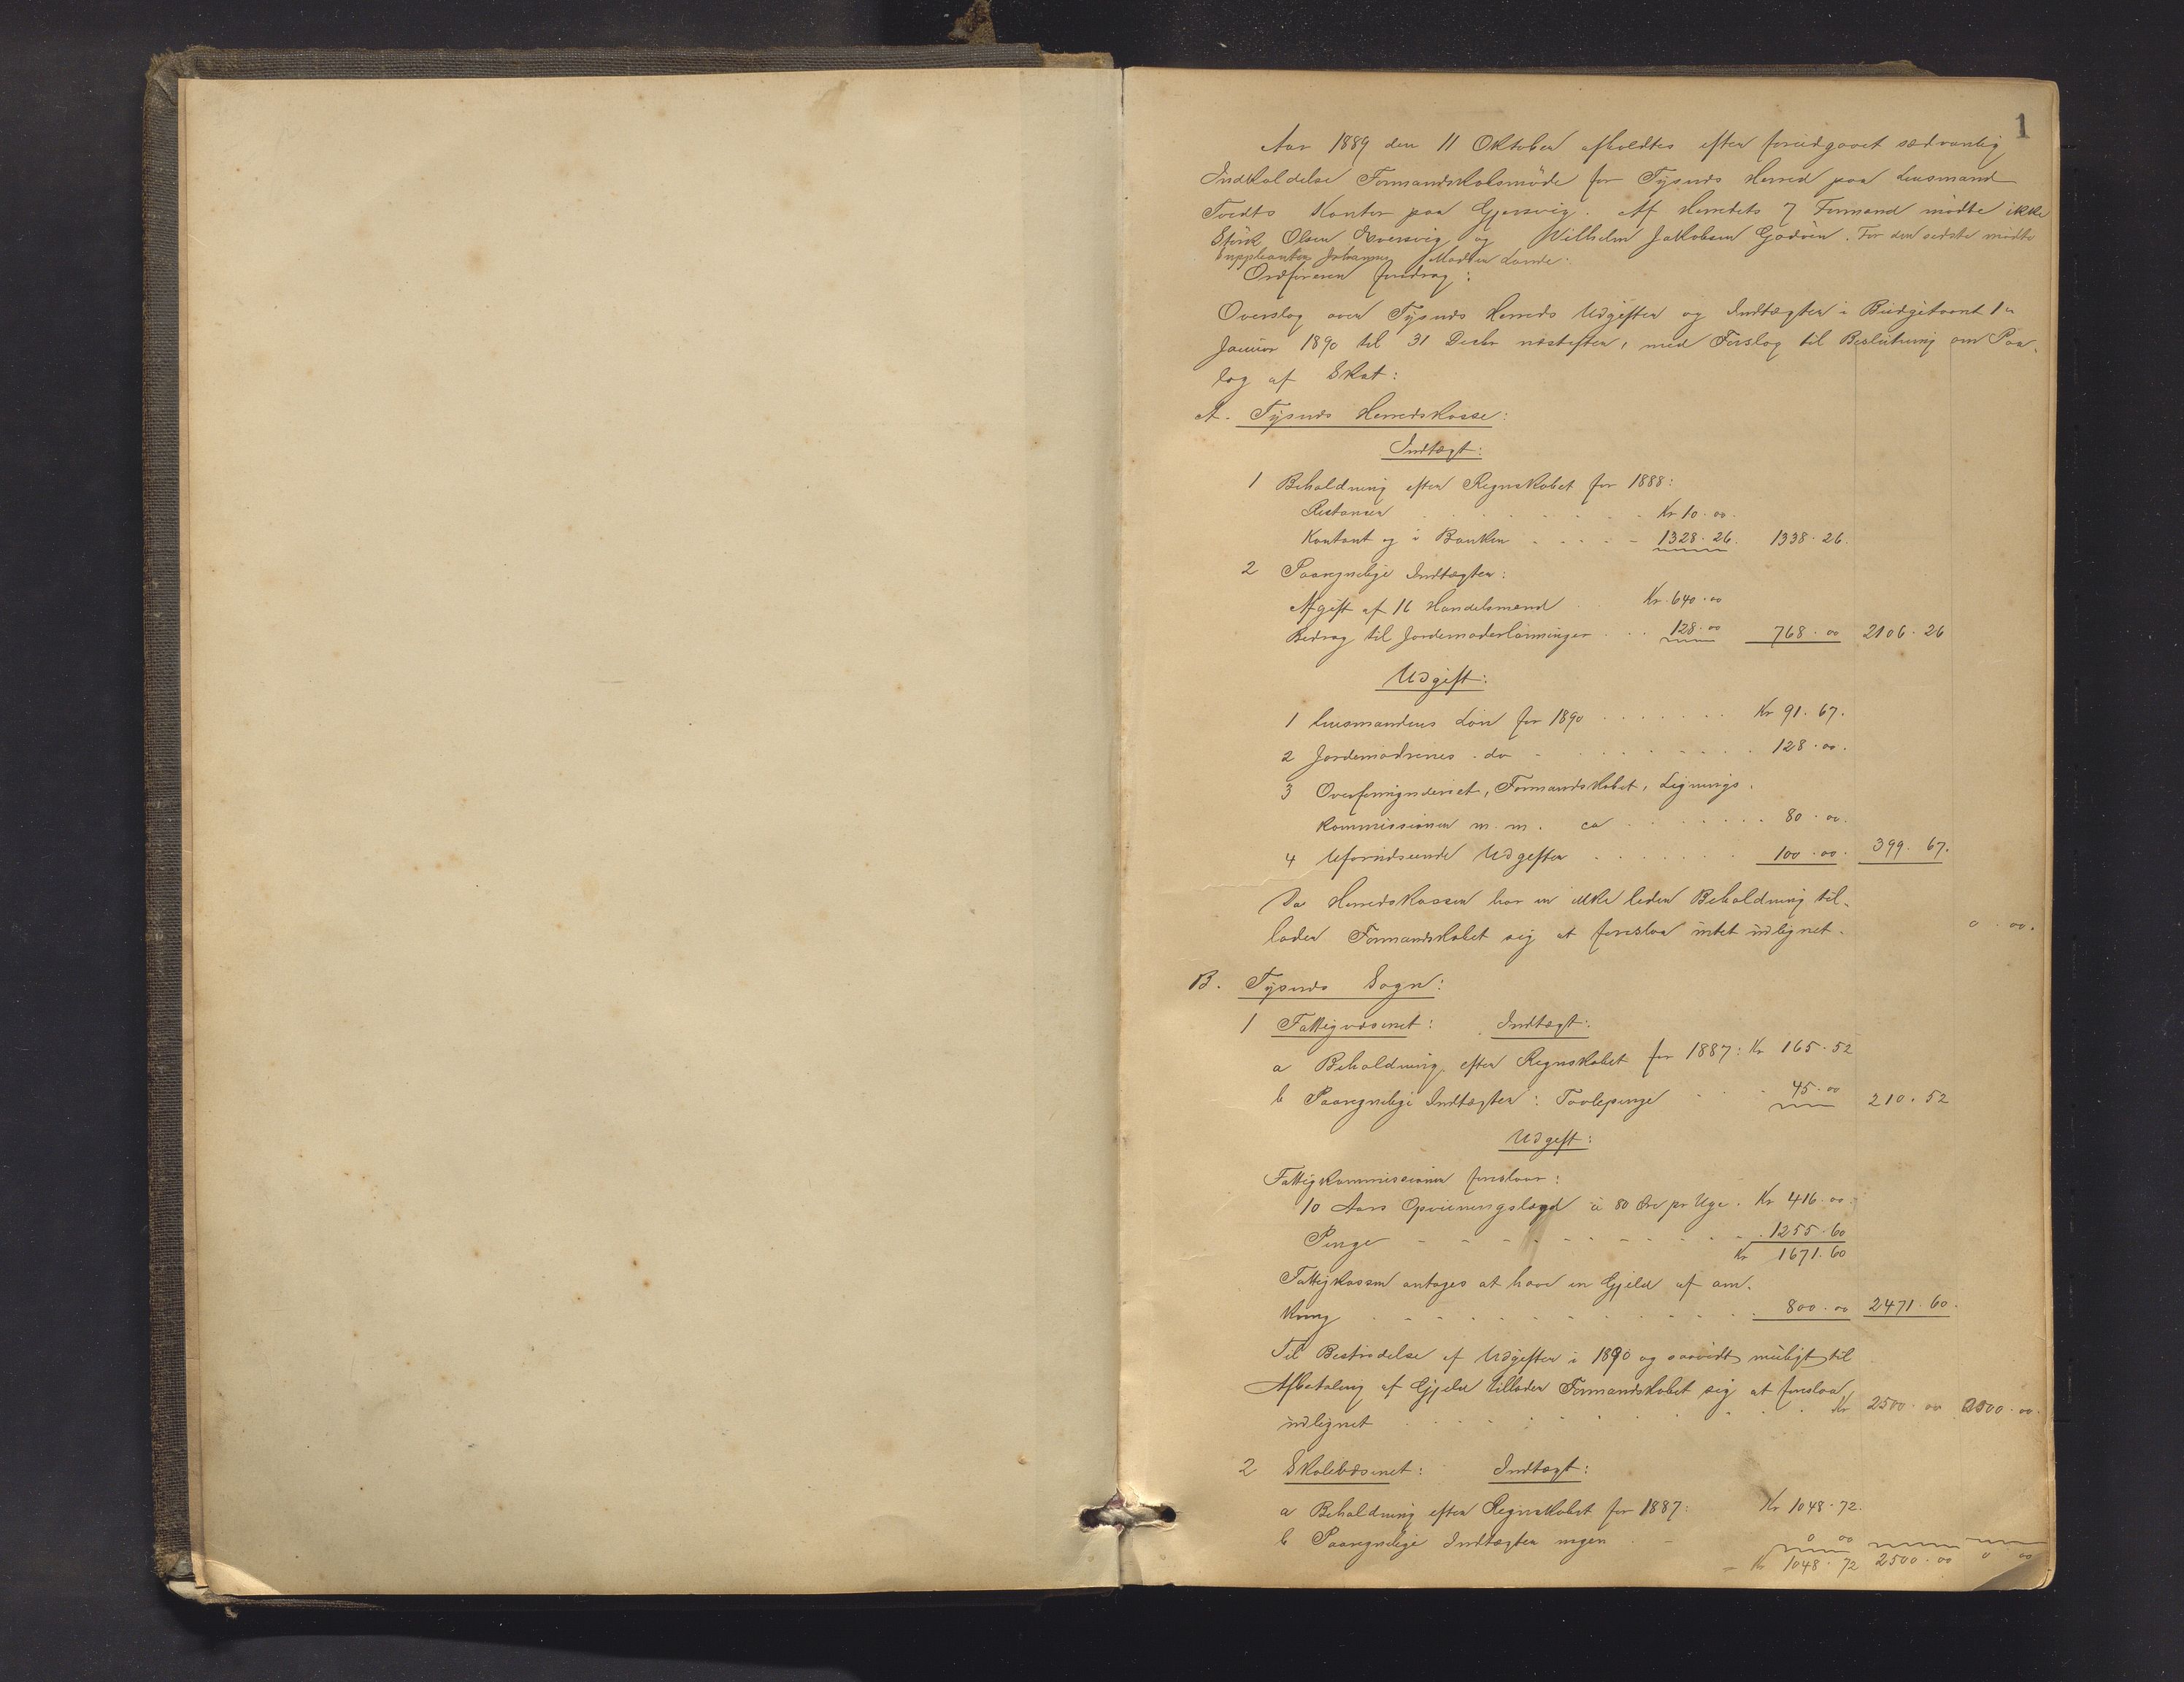 1
Aar 1889 den 11 Oktober afholdtes efter foreudgaaet sædvanlig
Indkaldelse Formandskabsmöde for Tysnes Herred paa Lensmand
Tvedts Kontor paa Gjersvig. Af Herredets 7 Formænd mödte ikke
Störk Olsen og Wilhelm Jakobsen Godöen. For den sidste mödte
Suppleanten Johannes Madsen Lande.
Ordföreren foredrog:
Overslag over Tysnes Herreds Udgifter og Indtægter i Budgetaaret 1ste
Januar 1890 til 31 Decbr næstefter, med Forslag til Beslutning om Paa-
læg af Skat:
A. Tysnes Herredskasse:
Indtægt:
1 Beholdning efter Regnskabet for 1888:
Restancer Kr 10.00.
Kontant og i Banken 1328.26. 1338.26.
2 Paaregnelige Indtægter:
Afgift af 16 Handelsmænd Kr. 640.00
Bidrag til Jordemoderlönninger 128.00 768.00 2106.26
Udgift:
1 Lensmandens Lön for 1890 Kr 91.67.
2 Jordemödrenes do 128.00.
3 Overformynderiet, Formandskabet, Lignings-
kommissionen m. m. ca 80.00.
4 Uforudseende Udgifter 100.00. 399.67.
Da Herredskassen har en ikke liden Beholdning til-
lader Formandskabet sig at foreslaa intet udlignet. 0.00.
B. Tysnes Sogn:
1 Fattigvæsenet: Indtægt:
a Beholdning efter Regnskabet for 1887: Kr 165.52
b Paaregnelige Indtægter: Tavlepenge 45.00 210.52
Udgift:
Fattigkommissionen foreslaar:
10 Aars Opviisningslægd à 80 Öre pr Uge. Kr 416.00.
Penge 1255.60
Kr 1671.60
Fattigkassen antages at have en Gjeld af om-
kring 800.00 2471.60.
Til Bestridelse af Udgifter i 1890 og saavidt muligt til
Afbetaling af Gjeld tillader Formandskabet sig at foreslaa
udlignet Kr 2500.00 2500.00.
2 Skolevæsenet: Indtægt:
a Beholdning efter Regnskabet for 1887: Kr 1048.72.
b Paaregnelige Indtægter ingen 0 00
Kr 1048.72 2500.00 0 00